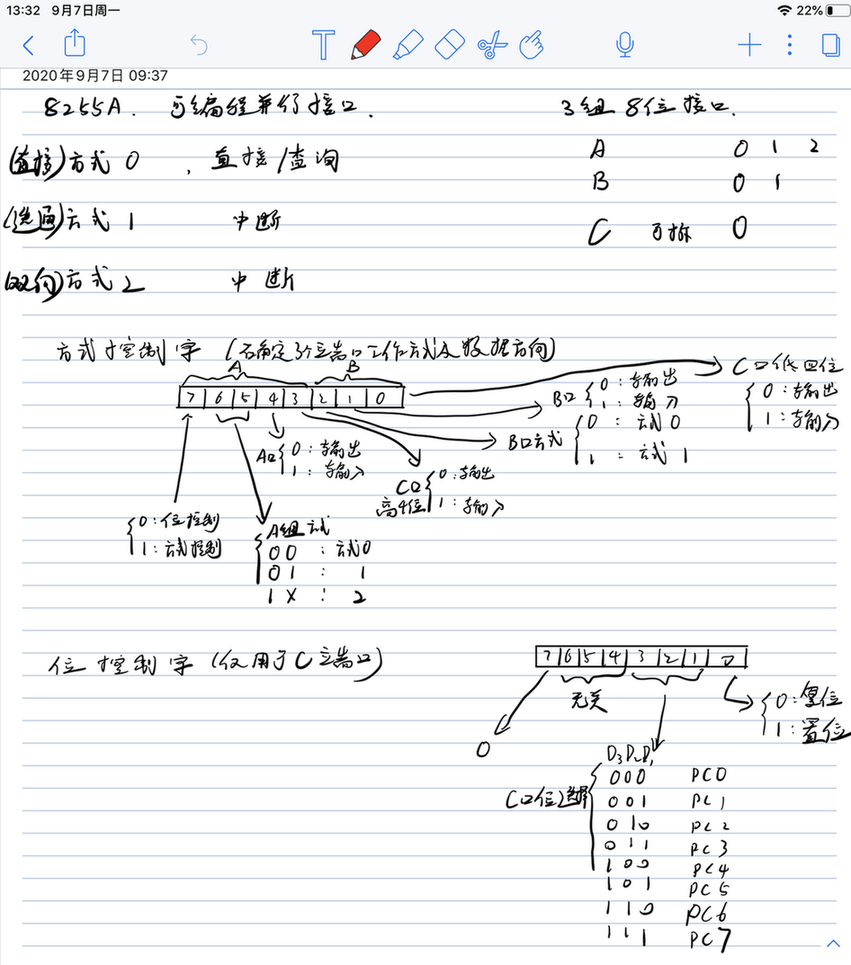 13:32 9月7日周一 22%
2020年9月7日 09:37
8255A. 可编程并行接口. 3组 8位接口.
(直接)方式 0 , 直接/查询 A 0 1 2
B 0 1
(选通)方式 1 中断
C 0
(双向)方式 2 中断
方式控制字 (确定3个端口工作方式及数据方向)
A B
7 6 5 4 3 2 1 0
C口低四位
0:输出
1:输入
B口
0:输出
1:输入
B口方式
0:方式0
1:方式1
A口
0:输出
1:输入
C口
高4位
0:输出
1:输入
0:位控制
1:方式控制
A组方式
00:方式0
01:1
1X:2
位控制字(仅用于C端口)
7 6 5 4 3 2 1 0
无关
0
0:复位
1:置位
D3D2D1
C口位选择
000 PC0
001 PC1
010 PC2
011 PC3
100 PC4
101 PC5
110 PC6
111 PC7